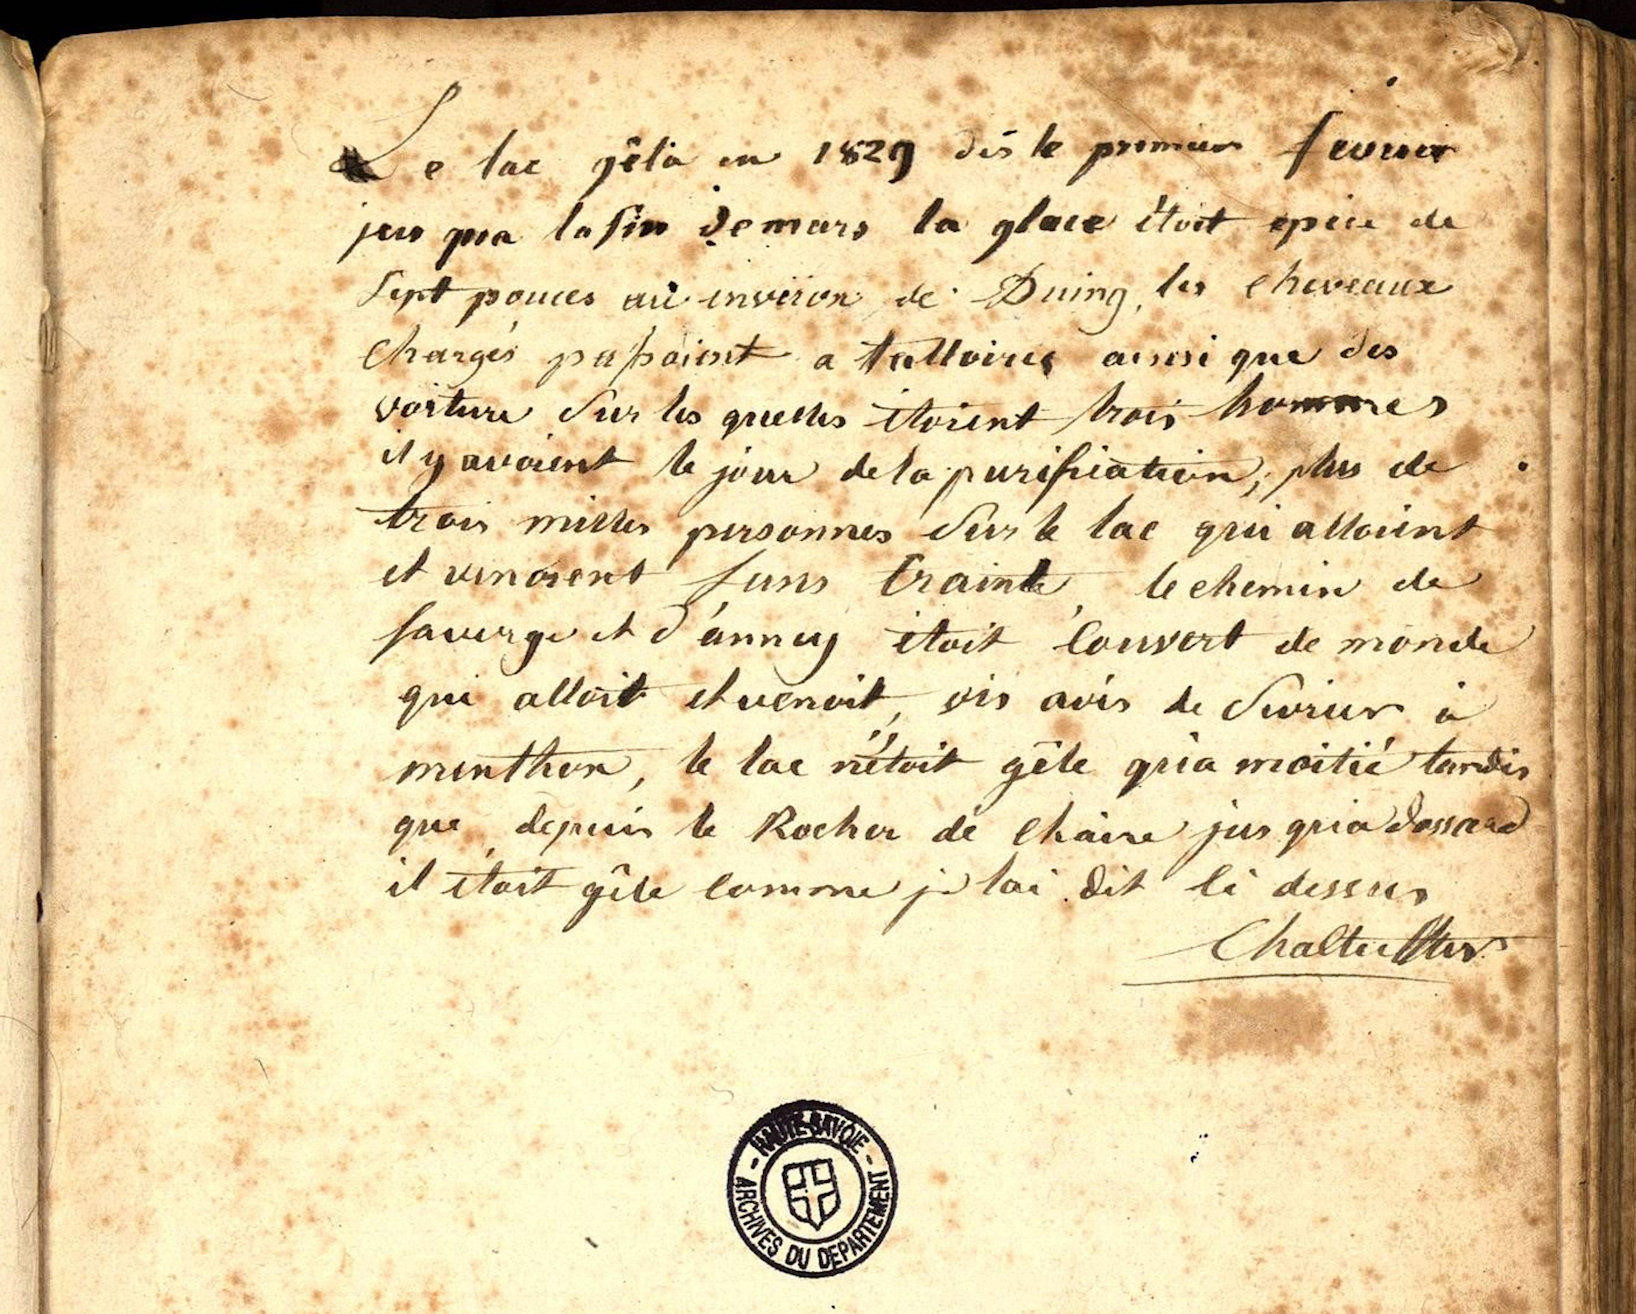 Le lac gêla en 1829 dès le premier fevrier
jus qua la fin de mars la glace étoit epèce de
Sept pouces au inviron de Duing, les cheveaux
Chargés passoient a talloires ainsi que des
voiture sur les quelles étoient trois hommes
il y avoient le jour de la purification, plus de
trois milles personnes sur le lac qui alloient
et venoient sans crainte, le chemin de
faverge et d'annecy étoit couvert de monde
qui alloit et venoit, vis avis de Sevrier à
menthon, le lac n'étoit gêle qu'a moitié tandis
que depuis le Rocher de chaire jus qu'a dossard
il étoit gêle comme je lai dit ci dessus
HAUTE-SAVOIE
ARCHIVES DU DEPARTEMENT